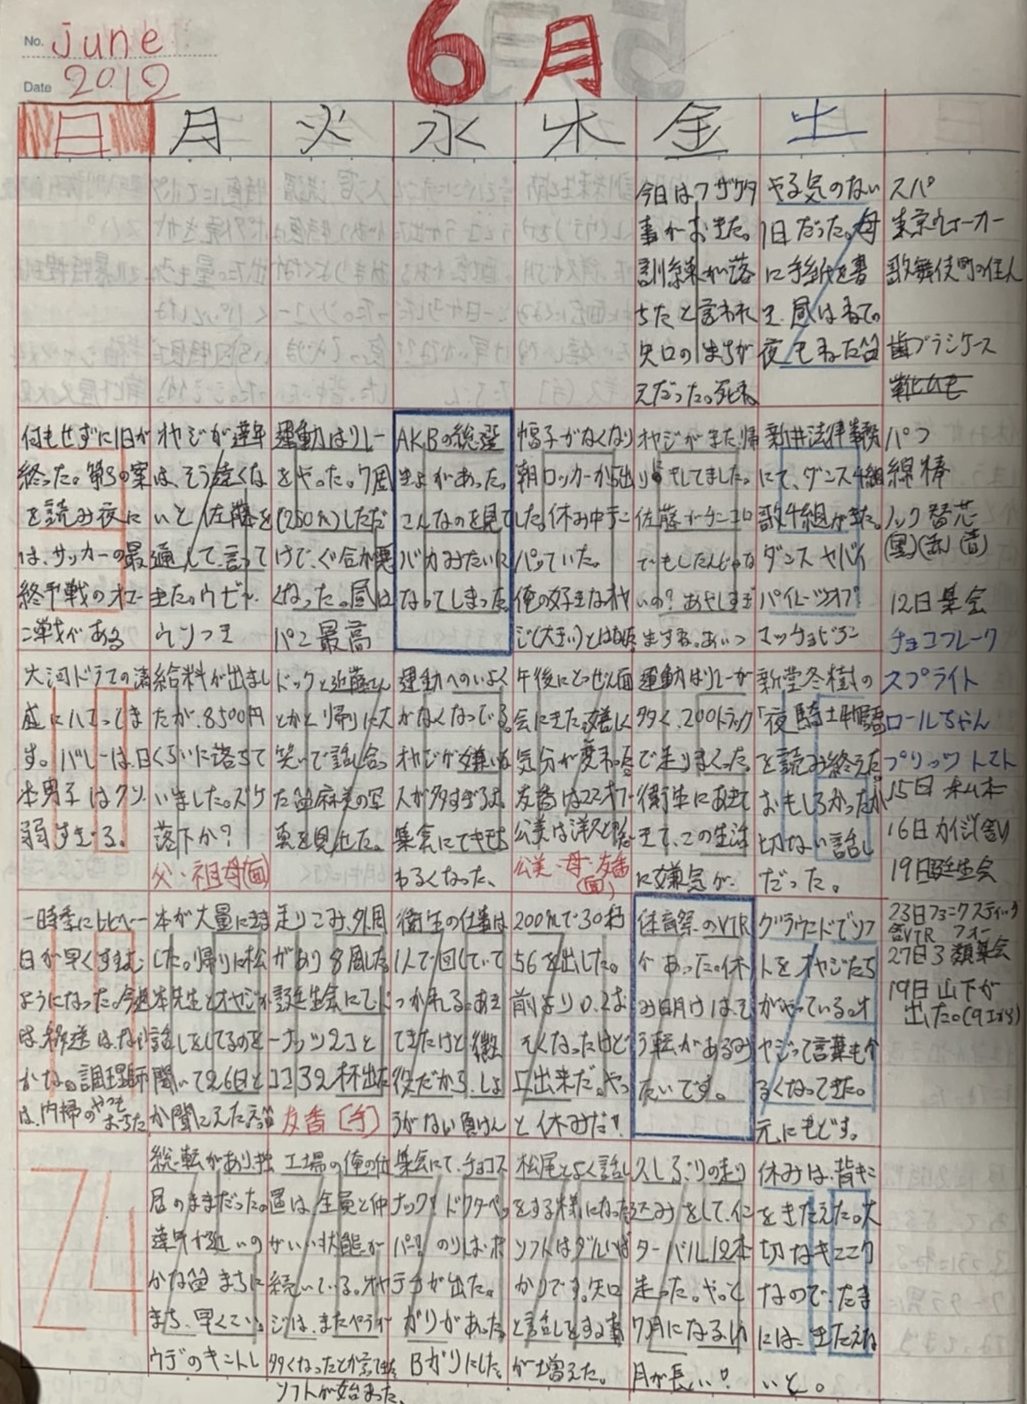 No. June
Date 2012
6月
日 月 火 水 木 金 土
今日はフザケタ
事がおきた。
訓練が落
ちたと言われ
矢口のまちが
えだった。死ね
やる気のない
1日だった。母
に手紙を書
き、昼はねての
夜もねた笛
スパ
東京ウォーカー
歌舞伎町の住人
歯ブラシケース
何もせずに1日が
終った。第3の案
を読み夜に
は、サッカーの最
終予戦のオマー
ン戦がある
オヤジが達年
は、そう遠くな
いと佐藤を
通して言って
きた。ウゼー。
ウソつき
運動はリレー
をやった。7周
(250m)しただ
けで、ぐ合が悪
くなった。昼は
パンの最高
AKBの総選
きょがあった。
こんなのを見て
バカみたいに
なってしまった。
帽子がなくなり
朝ロッカーから出
した。休み中テン
パっていた。
俺の好きなオヤ
ジ(大きい)とはなした
オヤジがまた帰
りをしてました。
佐藤とケンエロ
でもしたんじゃな
いの?あやしすぎ
ますね。あいつ
新井法律事務
にて、ダンス4組
歌4組が来た。
ダンスヤバイ
パイレーツオブ
マッチョドラゴン
パフ
綿棒
ノック替芯
(黒)(赤)(青)
12日集会
チョコフレーク
大河ドラマの清
盛にハマってま
す。バレーは、日
本男子はクソ
弱すぎる。
給料が出まし
たが、8500円
くらいに落ちて
いました。ズケ
落下か?
父・祖母(面)
ドックと近藤さん
とかと帰りに大
笑いで話し合っ
た笛麻美の写
真を見せた。
運動へのいよく
がなくなっている。
オヤジが嫌いな
スが多すぎるよ。
集会にてきもち
わるくなった、
午後にとつぜん面
会にきた。嬉しく
気分が変わった
友香は22才
公美は洋沢と話
公美・母・友香
(面)
運動はリレーが
多く、200トラック
で走りまくった。
衛生にあきて
きて、この生活
に嫌気が・
新堂冬樹の
「夜騎士物語
を読み終えた
おもしろかったが
切ない話し
だった。
スプライト
ロールちゃん
プリッツ トマト
15日 松本
16日カイジ(舎)
19日誕生会
一時季に比べ一
日が早くすすむ
ようになった。今週
は、移送は、ない
かな。調理師
は、内掃のやつも
おちた
本が大量にきま
した。帰りに松
本先生とオヤジが
話しをしてるのを
聞いて26日と
か聞こえたえ笛
走りこみ、外周
があり8周した
誕生会にてドー
ナッツ2コと
ココア2杯出た
友香〔手〕
衛生の仕事は
1人で回していて
つかれる。あき
てきたけど、微
役だから、しょ
うがない負けん
200mで30秒
56を出した。
前より0.2お
そくなったけど
上出来だ。やっ
と休みだ!
体育祭のVTR
があった。休
み明けはもう
う転があるみ
たいです。
グラウンドでソフ
トをオヤジたち
がやっている。オ
ヤジって言葉も今
るくなってきた。
元にもどす。
23日フェニクスティック
舎VTR フォー
27日3類集会
19日山下が
出た。(9工場)
24
総転があり独
居のままだった。
達年が近いの
かな笛 まちに
まち、早くこい。
ウデのキントレ
工場の俺の位
置は、全員と仲
がいい状態が
続いている。オヤ
ジは、またペラペラ
多くなったとか言ってた
ソフトが始まった。
集会にて、チョコス
ナック!ドクターペッ
パー!のりしおポ
テチが出た。
がりがあった
Bがりにした。
松尾とよく話し
をする様になった
ソフトはダルいば
かりです。矢口
と話しをする事
が増えた。
久しぶりの走り
込みをして、イン
ターバル12本
走った。やっと
7月になる1ヶ
月が長い!
休みは、背キン
をきたえた。大
切なキンニク
なので、たま
には、きたえな
いと。